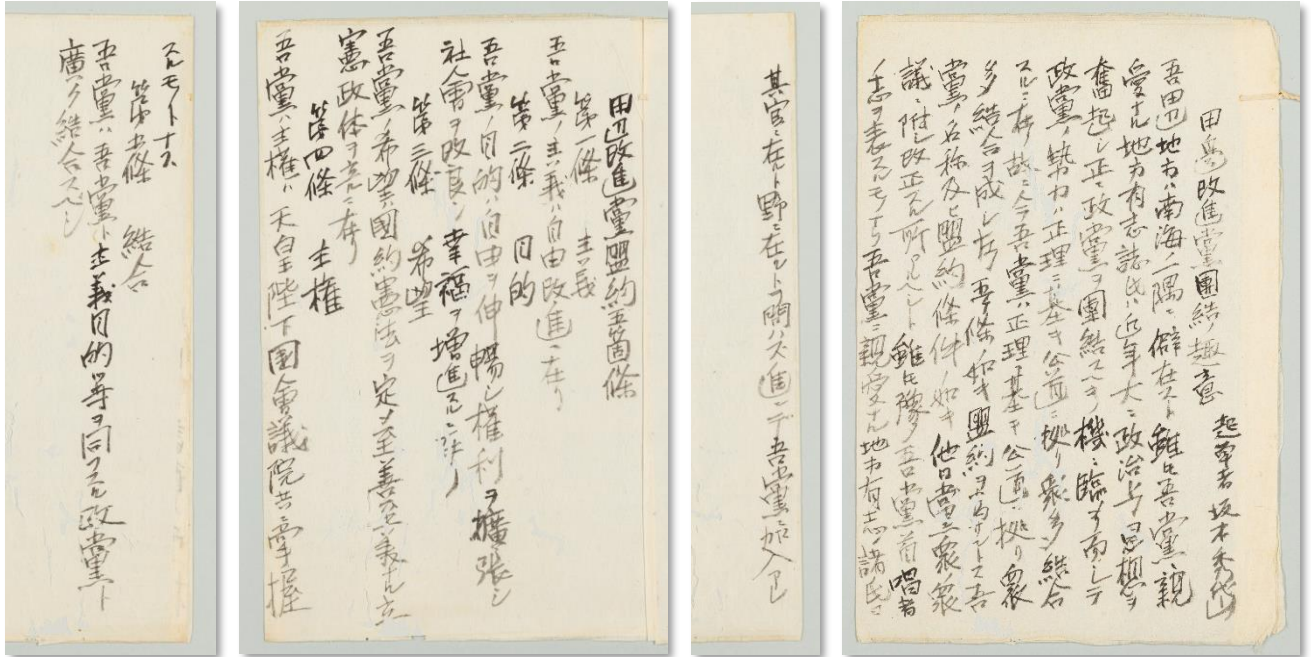 田邊改進黨團結ノ趣意
起草者 坂本秀岱
吾田辺地方ハ南海ノ一隅ニ僻在スト雖モ吾黨ノ親
愛ナル地方有志諸氏ハ近年大ニ政治上ノ思想ヲ
奮起シ正ニ政黨ヲ團結スヘキノ機ニ臨ム而シテ
政黨ノ勢力ハ正理ニ基キ公道ニ拠リ衆多ノ結合
スルニ在リ故ニ今ラ吾黨ハ正理ニ基キ公道ニ拠リ衆
多ノ結合ヲ成シ左ノ五條ノ如キ盟約ヲ為サントス吾
黨ノ名称及ヒ盟約條件ノ如キ他日當ニ衆
議ニ附シ改正スル所アルヘシト雖モ豫メ吾黨首唱者
ノ志ヲ表スルモノナリ吾黨ニ親愛ナル地方有志ノ諸氏ニ
其官ニ在ルト野ニ在ルトヲ問ハス進ンデ吾黨ニ加入アレ
田辺改進黨盟約五箇條
第一條 主義
吾黨ノ主義ハ自由改進ニ在リ
第二條 目的
吾黨ノ目的ハ自由ヲ伸暢シ権利ヲ擴張シ
社會ヲ改良シ幸福ヲ増進スルニ在リ
第三條 希望
吾黨ノ希望ハ國約憲法ヲ定メ至善至美ナル立
憲政体ヲ立ルニ在リ
第四條 主権
吾黨ハ主権ハ 天皇陛下國會議院共ニ掌握
スルモノトナス
第五條 結合
吾黨ハ吾黨ト主義目的等ヲ同フスル政黨ト
廣ク結合スヘシ